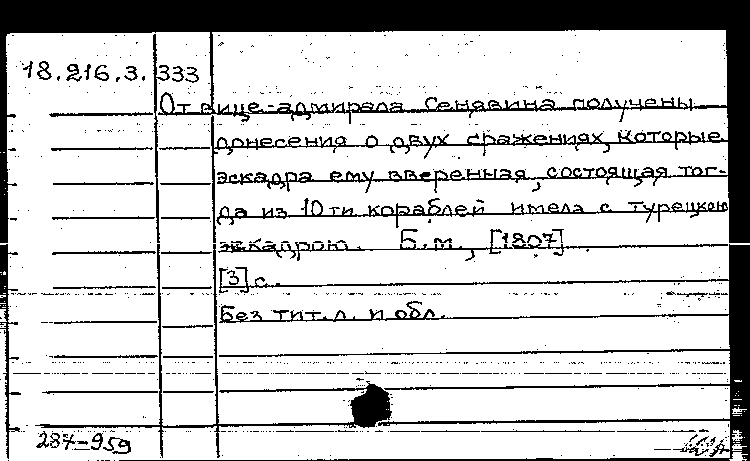 18.216.3.333
От вице-адмирала Сенявина получены
донесения о двух сражениях, которые
эскадра ему вверенная, состоящая тог-
да из 10ти кораблей имела с турецкою
эскадрою. Б.м., [1807]
[3] с.
Без тит. л. и обл.
287-959